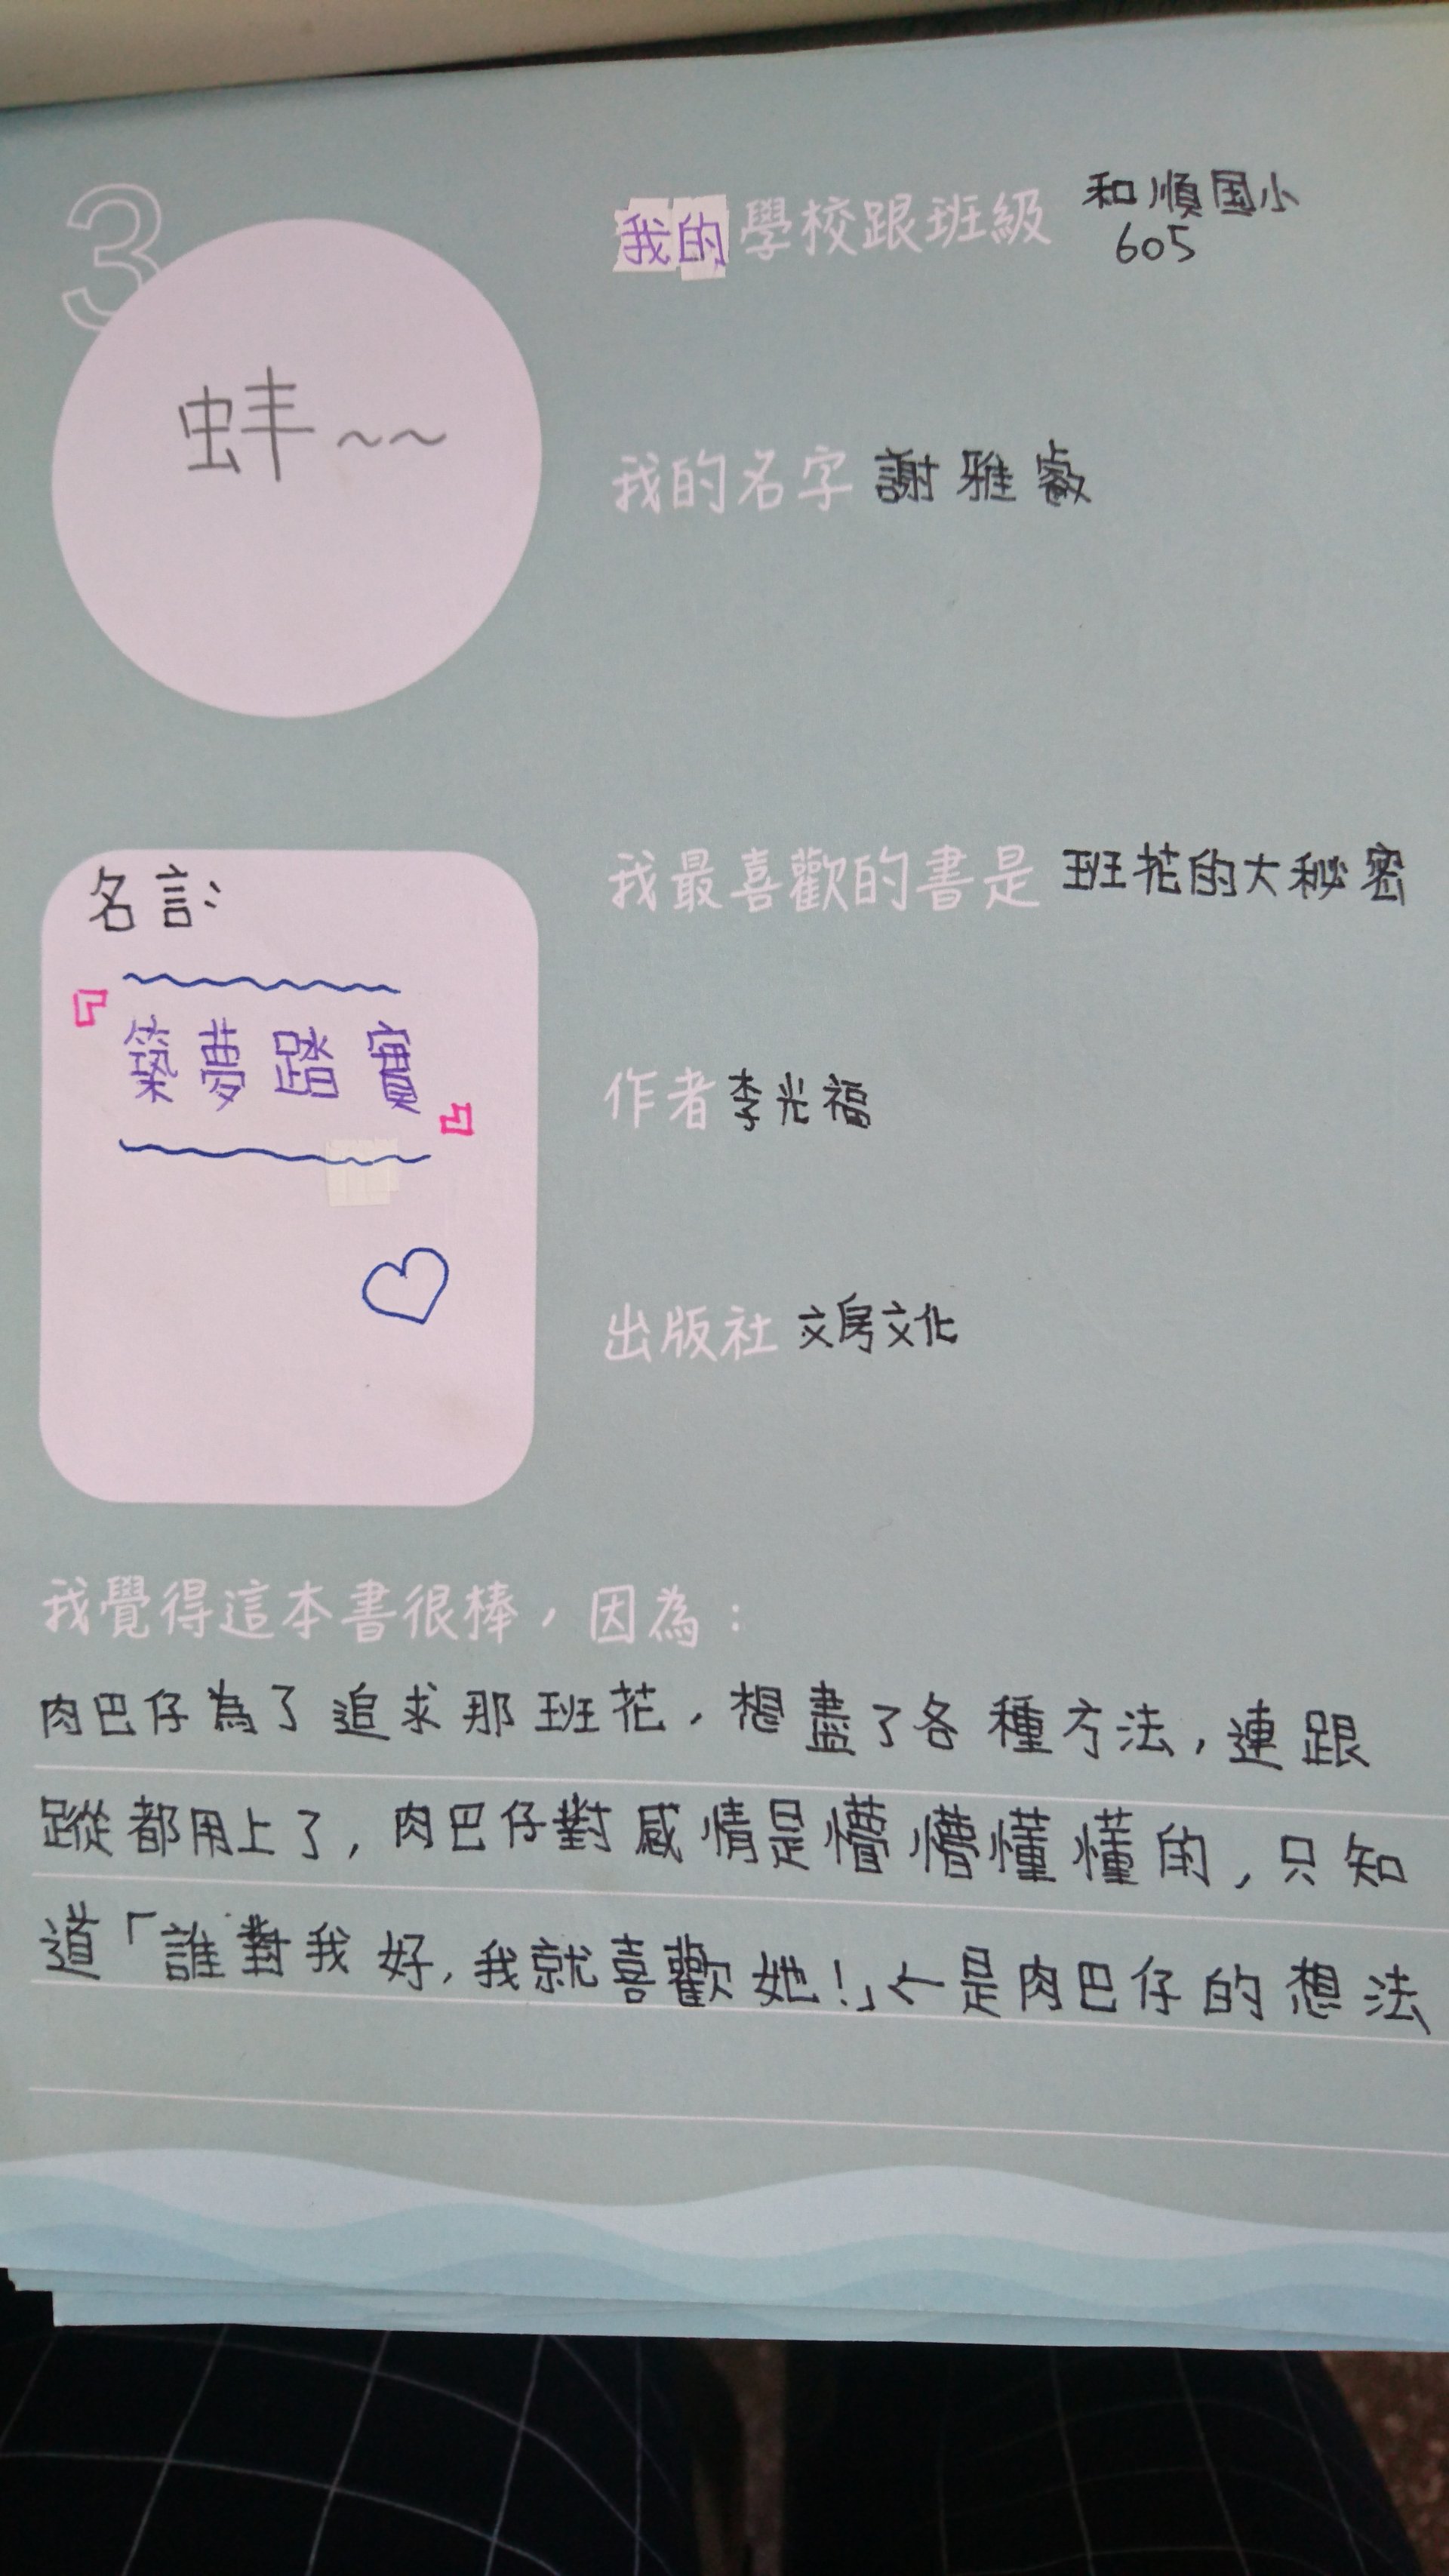 3
蚌~~
我的學校跟班級 和順国小
605
我的名字 謝雅叡
名言:
『築夢踏實』
我最喜歡的書是 班花的大秘密
作者 李光福
出版社 文房文化
我覺得這本書很棒，因為：
肉巴仔為了追求那班花，想盡了各種方法，連跟
蹤都用上了，肉巴仔對感情是懵懵懂懂的，只知
道「誰對我好，我就喜歡她！」←是肉巴仔的想法